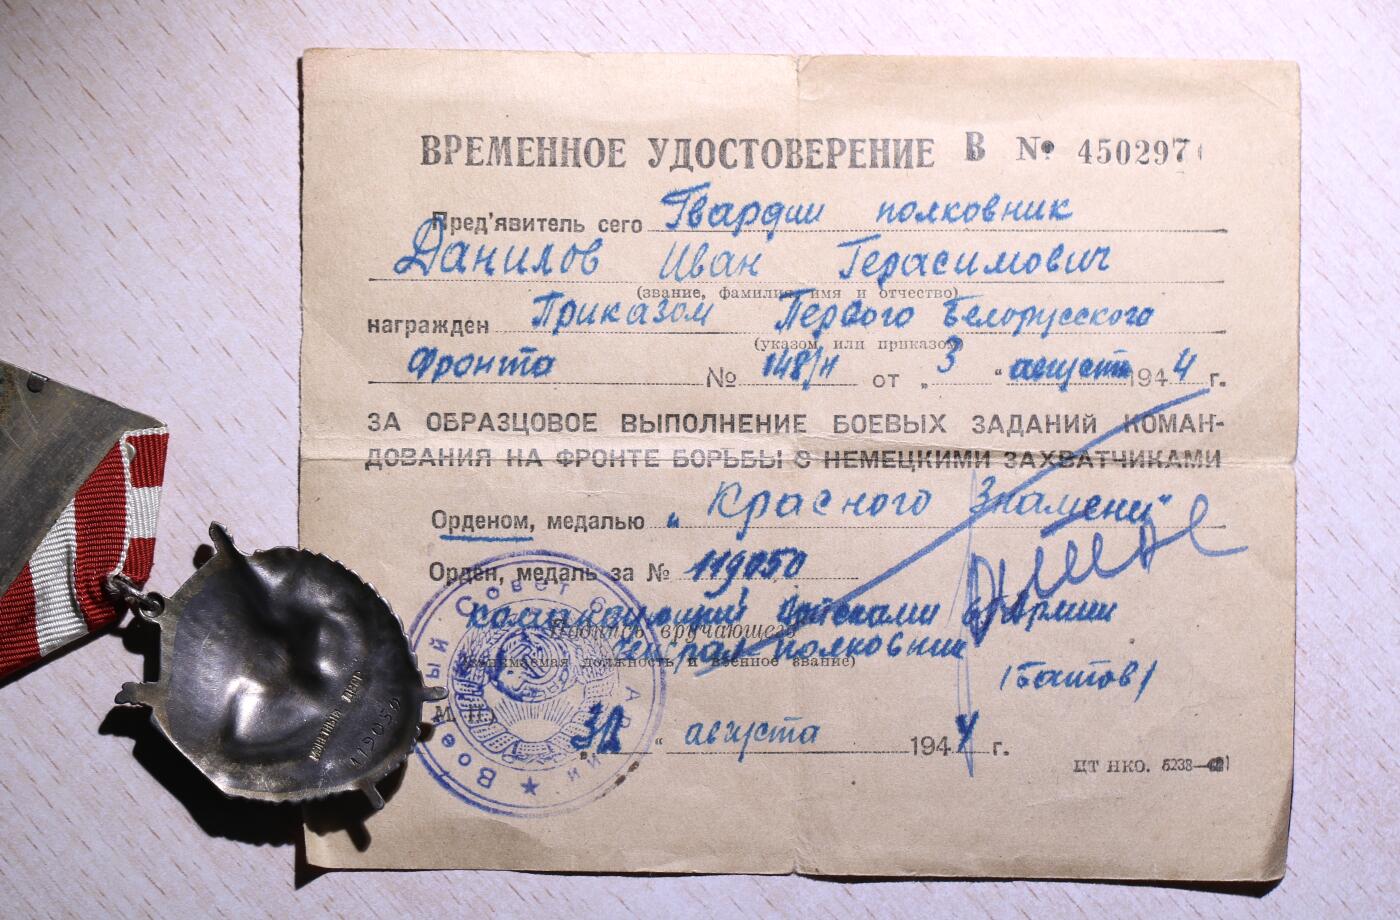 ВРЕМЕННОЕ УДОСТОВЕРЕНИЕ В № 450297
Пред'явитель сего Гвардии полковник
Данилов Иван Герасимович
(звание, фамилия, имя и отчество)
награжден Приказом Первого Белорусского
(указом или приказом)
Фронта № 148/н от „3“ августа 1944 г.
ЗА ОБРАЗЦОВОЕ ВЫПОЛНЕНИЕ БОЕВЫХ ЗАДАНИЙ КОМАН-
ДОВАНИЯ НА ФРОНТЕ БОРЬБЫ С НЕМЕЦКИМИ ЗАХВАТЧИКАМИ
Орденом, медалью „Красного Знамени“
Орден, медаль за № 119050
командующий войсками армии
Подпись вручающего
Генерал полковник
(занимаемая должность и военное звание)
(Батов)
М. П.
августа 1944 г.
ЦТ НКО. 5238—
Военный Совет Армии
МОНЕТНЫЙ ДВОР
119050